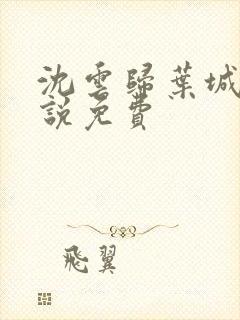 沈雲歸葉城
說免費
飛翼